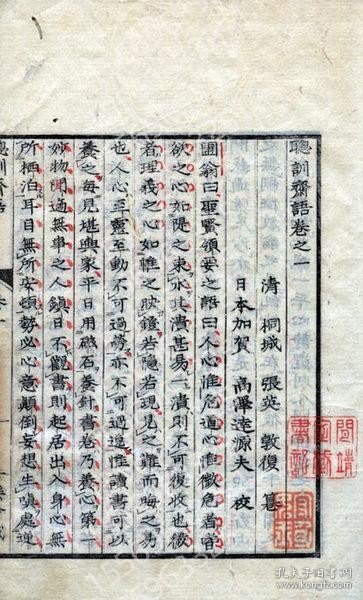 聰訓齋語卷之一
清 桐城 張英 敦復 纂
日本加賀 高澤源夫 校
圃翁曰聖賢領要之語曰人心惟危道心惟微危者嗜
欲之心如隄之束水其潰甚易一潰則不可復收也微
者理義之心如帷之映鐙若隱若現見之難而晦之易
也人心至靈至動不可過勞亦不可過逸惟讀書可以
養之每見堪輿家平日用磁石養針書卷乃養心第一
妙物閒適無事之人鎮日不觀書則起居出入身心無
所栖泊耳目無所安頓勢必心意顛倒妄想生嗔處逆
聰訓齋語
孔夫子旧书网